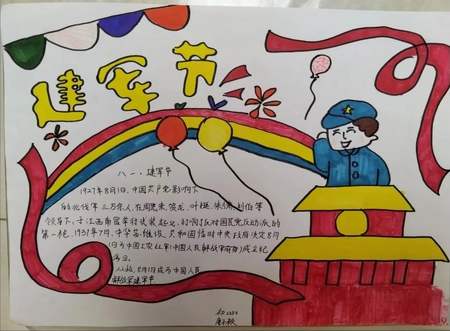 建军节
八一·建军节
1927年8月1日,中国共产党影响下
的北伐军三万余人,在周恩来、贺龙、叶挺、朱德、刘伯等
领导下,于江西南昌举行武装起义,打响了反对国民党反动派的
第一枪。1937年7月,中华苏维埃共和国临时中央政府决定8月
1日为中国工农红军(中国人民解放军前身)成立纪
8月1日成为中国人民
解放军建军节